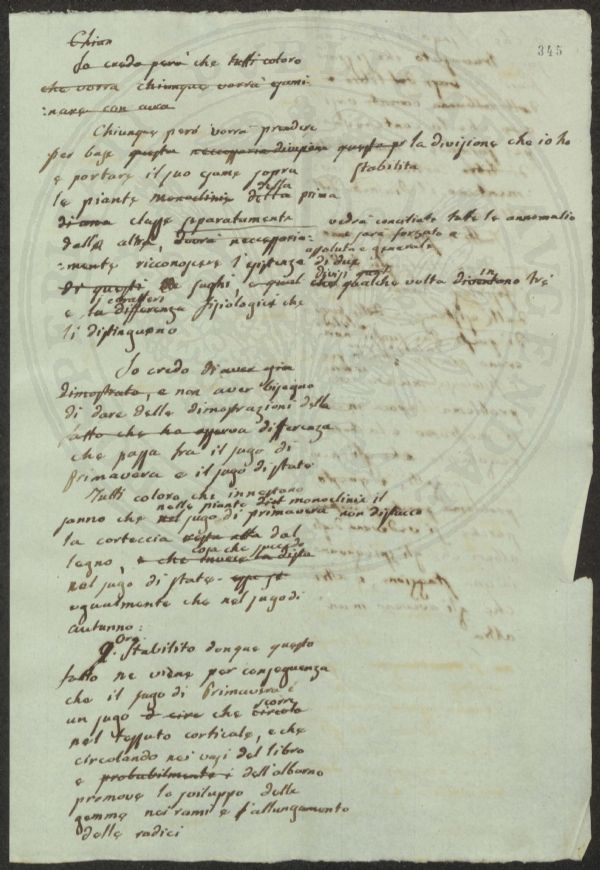 345
Chian
Io credo però che tutti coloro
che vorrà chiunque vorrà esami:
:nare con cura
Chiunque però vorrà prendere
per base questa necessaria divisione questa pr la divisione che io ho
stabilita
e portare il suo esame sopra
le piante monoclinie della detta prima
di una classe separatamente vedrà conciliate tute le annomalie
dalle altre, dovrà neccessaria: ne sarà forzato a
assoluta e generale
:mente ricconoscere l'esistenza di due
divisi quali
di questi sughi, e qual che qualche volta diventano in tre
caratteri
e la differenza fisiologici che
li distinguono
Io credo di aver gia
dimostrato, e non aver bisogno
di dare delle dimostrazioni della
fatto che ho osserva differenza
che passa fra il sugo di
Primavera e il sugo di state
Tutti coloro che innestono
nelle piante monoclinie il
sanno che nel sugo di primavera non distacco
la corteccia resta atta dal
cosa che succede
legno, e che invece la dista
nel sugo di state
ugualmente che nel sugo di
autunno:
Ora
Stabilito donque questo
fatto ne viene per conseguenza
che il sugo di Primavera è
scorre
un sugo che circola
nel tessuto corticale, e che
circolando nei vasi del libro
e probabilmente dell'alborno
promove lo sviluppo delle
gemme nei rami e l'allungamento
delle radici